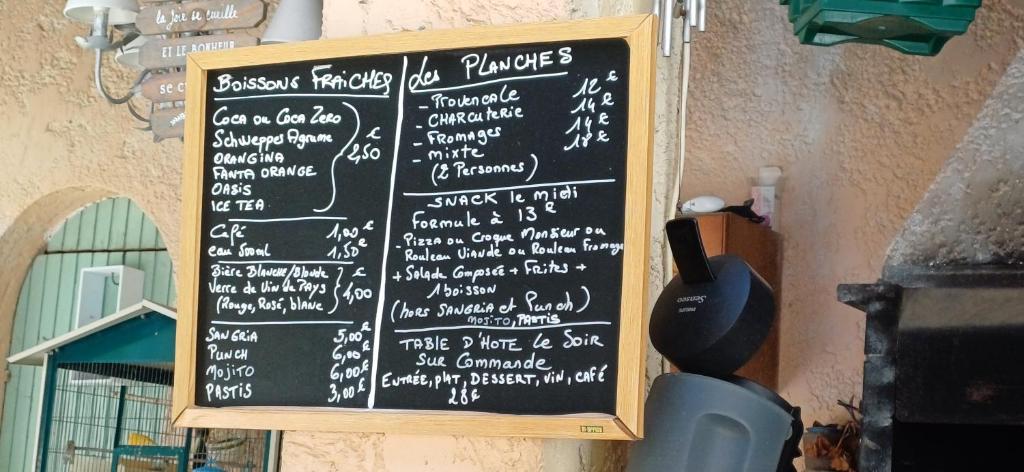 la Joie se cueille
ET LE BONHEUR
BOISSONS FRAICHES
COCA ou COCA ZERO
Schweppes Agrume
ORANGINA
FANTA ORANGE
OASIS
ICE TEA
2,50 €
Café 1,00 €
eau 500ml 1,50 €
Bière BLANCHE/Blonde
Verre de Vin de PAYS
(Rouge, Rosé, blanc)
4,00 €
SANGRIA 5,00 €
PUNCH 6,00 €
MOJITO 6,00 €
PASTIS 3,00 €
Les PLANCHES
- PROVENCALE 12 €
- CHARCUTERIE 14 €
- FROMAGES 14 €
- mixte 18 €
(2 Personnes)
SNACK le midi
FORMULE à 13 €
- PIZZA ou Croque Monsieur ou
Rouleau Viande ou Rouleau Fromage
+ Salade Composée + Frites +
1 boisson
(hors SANGRIA et Punch)
MOJITO, PASTIS
TABLE D'HOTE le Soir
SUR Commande
ENTRÉE, plAT, DESSERT, VIN, CAFÉ
28 €
PHILIPS
Senseo